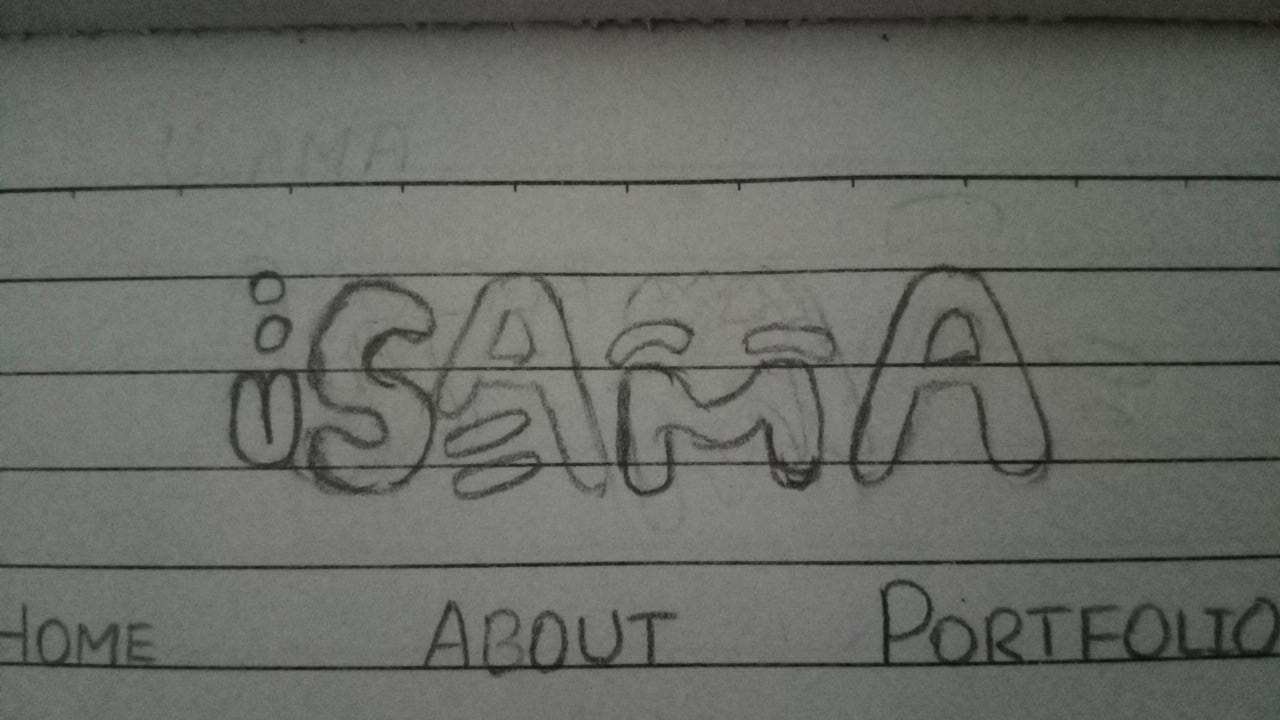 USAMA
HOME ABOUT PORTFOLIO